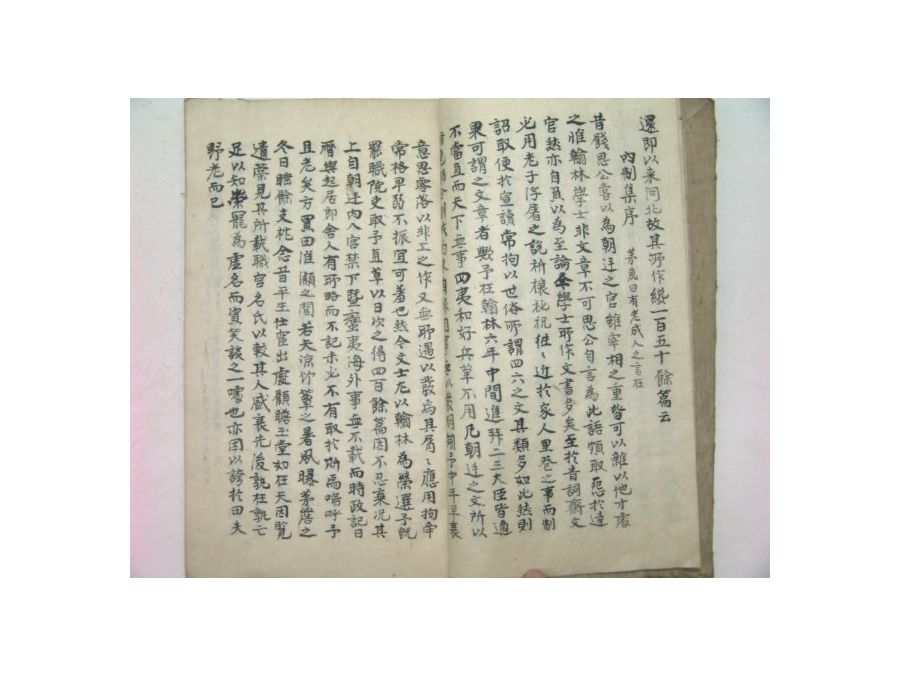 還即以来河北故其所作纔一百五十餘篇云
內制集序 茅鹿曰有老成人之言在
昔錢思公嘗以為朝廷之官雖宰相之重皆可以雜以他才處
之惟翰林學士非文章不可思公自言為此語頗取怒於達
官然亦自負以為至論今學士所作文書多矣至於青詞齋文
必用老子浮屠之說祈禳祕祝往〻近於家人里巷之事而制
詔取便於宣讀常拘以世俗所謂四六之文其類多如此然則
果可謂之文章者歟予在翰林六年中間進拜二三大臣皆適
不當直而天下無事四夷和好兵革不用凡朝廷之文所以
予中年早衰
意思零落以非工之作又無所遇以發焉其屑〻應用拘牽
常格卑弱不振宜可羞也然今文士尤以翰林為榮選予既
罷職院吏取予直草以日次之得四百餘篇因不忍棄況其
上自朝廷內入宮禁下暨蠻夷海外事無不載而時政記日
曆與起居郎舍人有所略而不記未必不有取於斯焉嗚呼予
且老矣方買田淮潁之間若夫涼竹簟之暑風曝茅簷之
冬日睡餘支枕念昔平生仕宦出處顧瞻玉堂如在天因覧
遺藁見其所載職官名氏以較其人盛衰先後孰在孰亡
足以知榮寵為虛名而資笑談之一噱也亦因以誇於田夫
野老而已